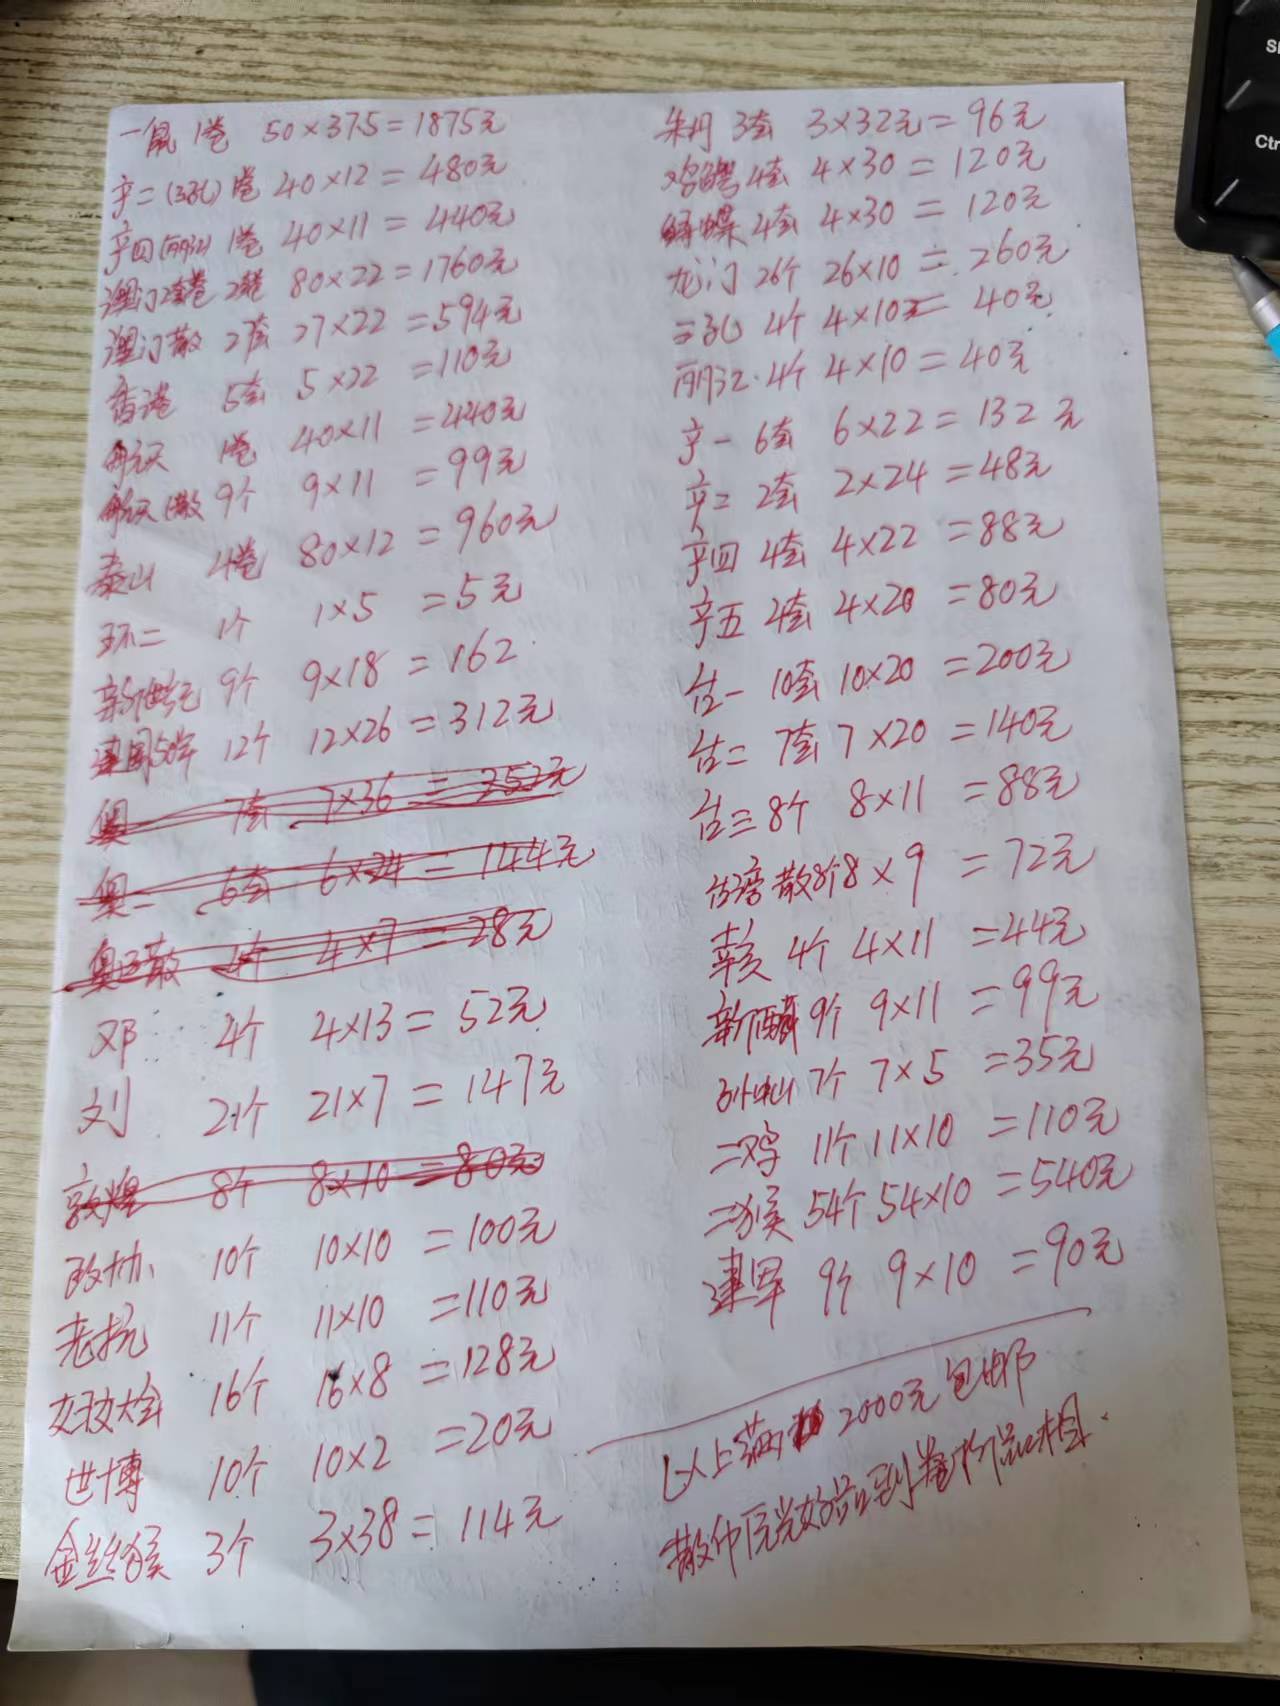 一鼠 1卷 50×37.5=1875元
宁二(三孔) 1卷 40×12=480元
宁四(丽江) 1卷 40×11=440元
澳门 2套卷 80×22=1760元
澳门散 27套 27×22=594元
香港 5套 5×22=110元
航天 1卷 40×11=440元
航天散 9个 9×11=99元
泰山 4卷 80×12=960元
环二 1个 1×5=5元
新世纪 9个 9×18=162
建国50年 12个 12×26=312元
奥一 7套 7×36=252元
奥二 6套 6×24=144元
奥运散 4个 4×7=28元
邓 4个 4×13=52元
刘 21个 21×7=147元
敦煌 8个 8×10=80元
政协 10个 10×10=100元
老抗 11个 11×10=110元
妇女大会 16个 16×8=128元
世博 10个 10×2=20元
金丝猴 3个 3×38=114元
朱䴉 3套 3×32元=96元
4套 4×30=120元
蝶 4套 4×30=120元
龙门 26个 26×10=260元
三孔 4个 4×10元=40元
丽江 4个 4×10=40元
宁一 6套 6×22=132元
宁二 2套 2×24=48元
宁四 4套 4×22=88元
宁五 4套 4×20=80元
台一 10套 10×20=200元
台二 7套 7×20=140元
台三 8个 8×11=88元
台湾散 8个 8×9=72元
辛亥 4个 4×11=44元
新疆 9个 9×11=99元
孙中山 7个 7×5=35元
二鸡 11个 11×10=110元
二猴 54个 54×10=540元
建军 9个 9×10=90元
以上满 2000元包邮
散币原光好品到卷拆品相.